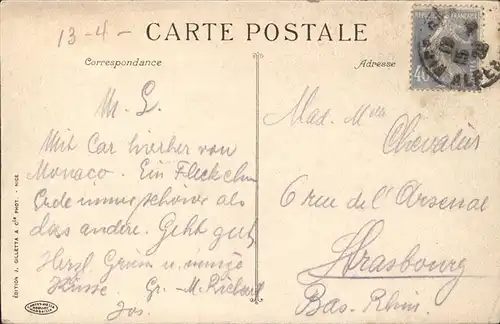 13-4-
CARTE POSTALE
Correspondance
Adresse
RÉPUBLIQUE FRANÇAISE
40
M. L.
Mit Car hierher von
Monaco. Ein Fleckchen
Erde immer schöner als
das andere. Geht gut,
Herzl. Grüsse u. innige
Küsse. Gr.-M. Richard
Jos.
Mad. Mme
Chevalier
6 rue de l'Arsenal
Strasbourg
Bas-Rhin.
ÉDITION J. GILLETTA & Cie PHOT. - NICE